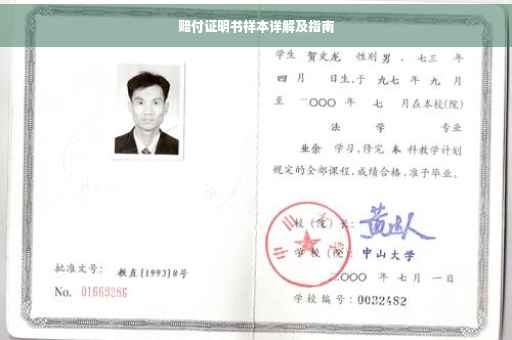 赔付证明书样本详解及指南
学生 贺文龙 性别 男，七三 年
四 月 日生，于 九七 年 九 月
至 二〇〇〇 年 七 月在本校(院)
法 学 专业
业余 学习，修完 本 科教学计划
规定的全部课程，成绩合格，准予毕业。
校（院）长：
学校（院）：中山大学
二〇〇〇 年 七 月 一 日
批准文号： 教直[1993]8号
No. 01669286
学校编号：0032482